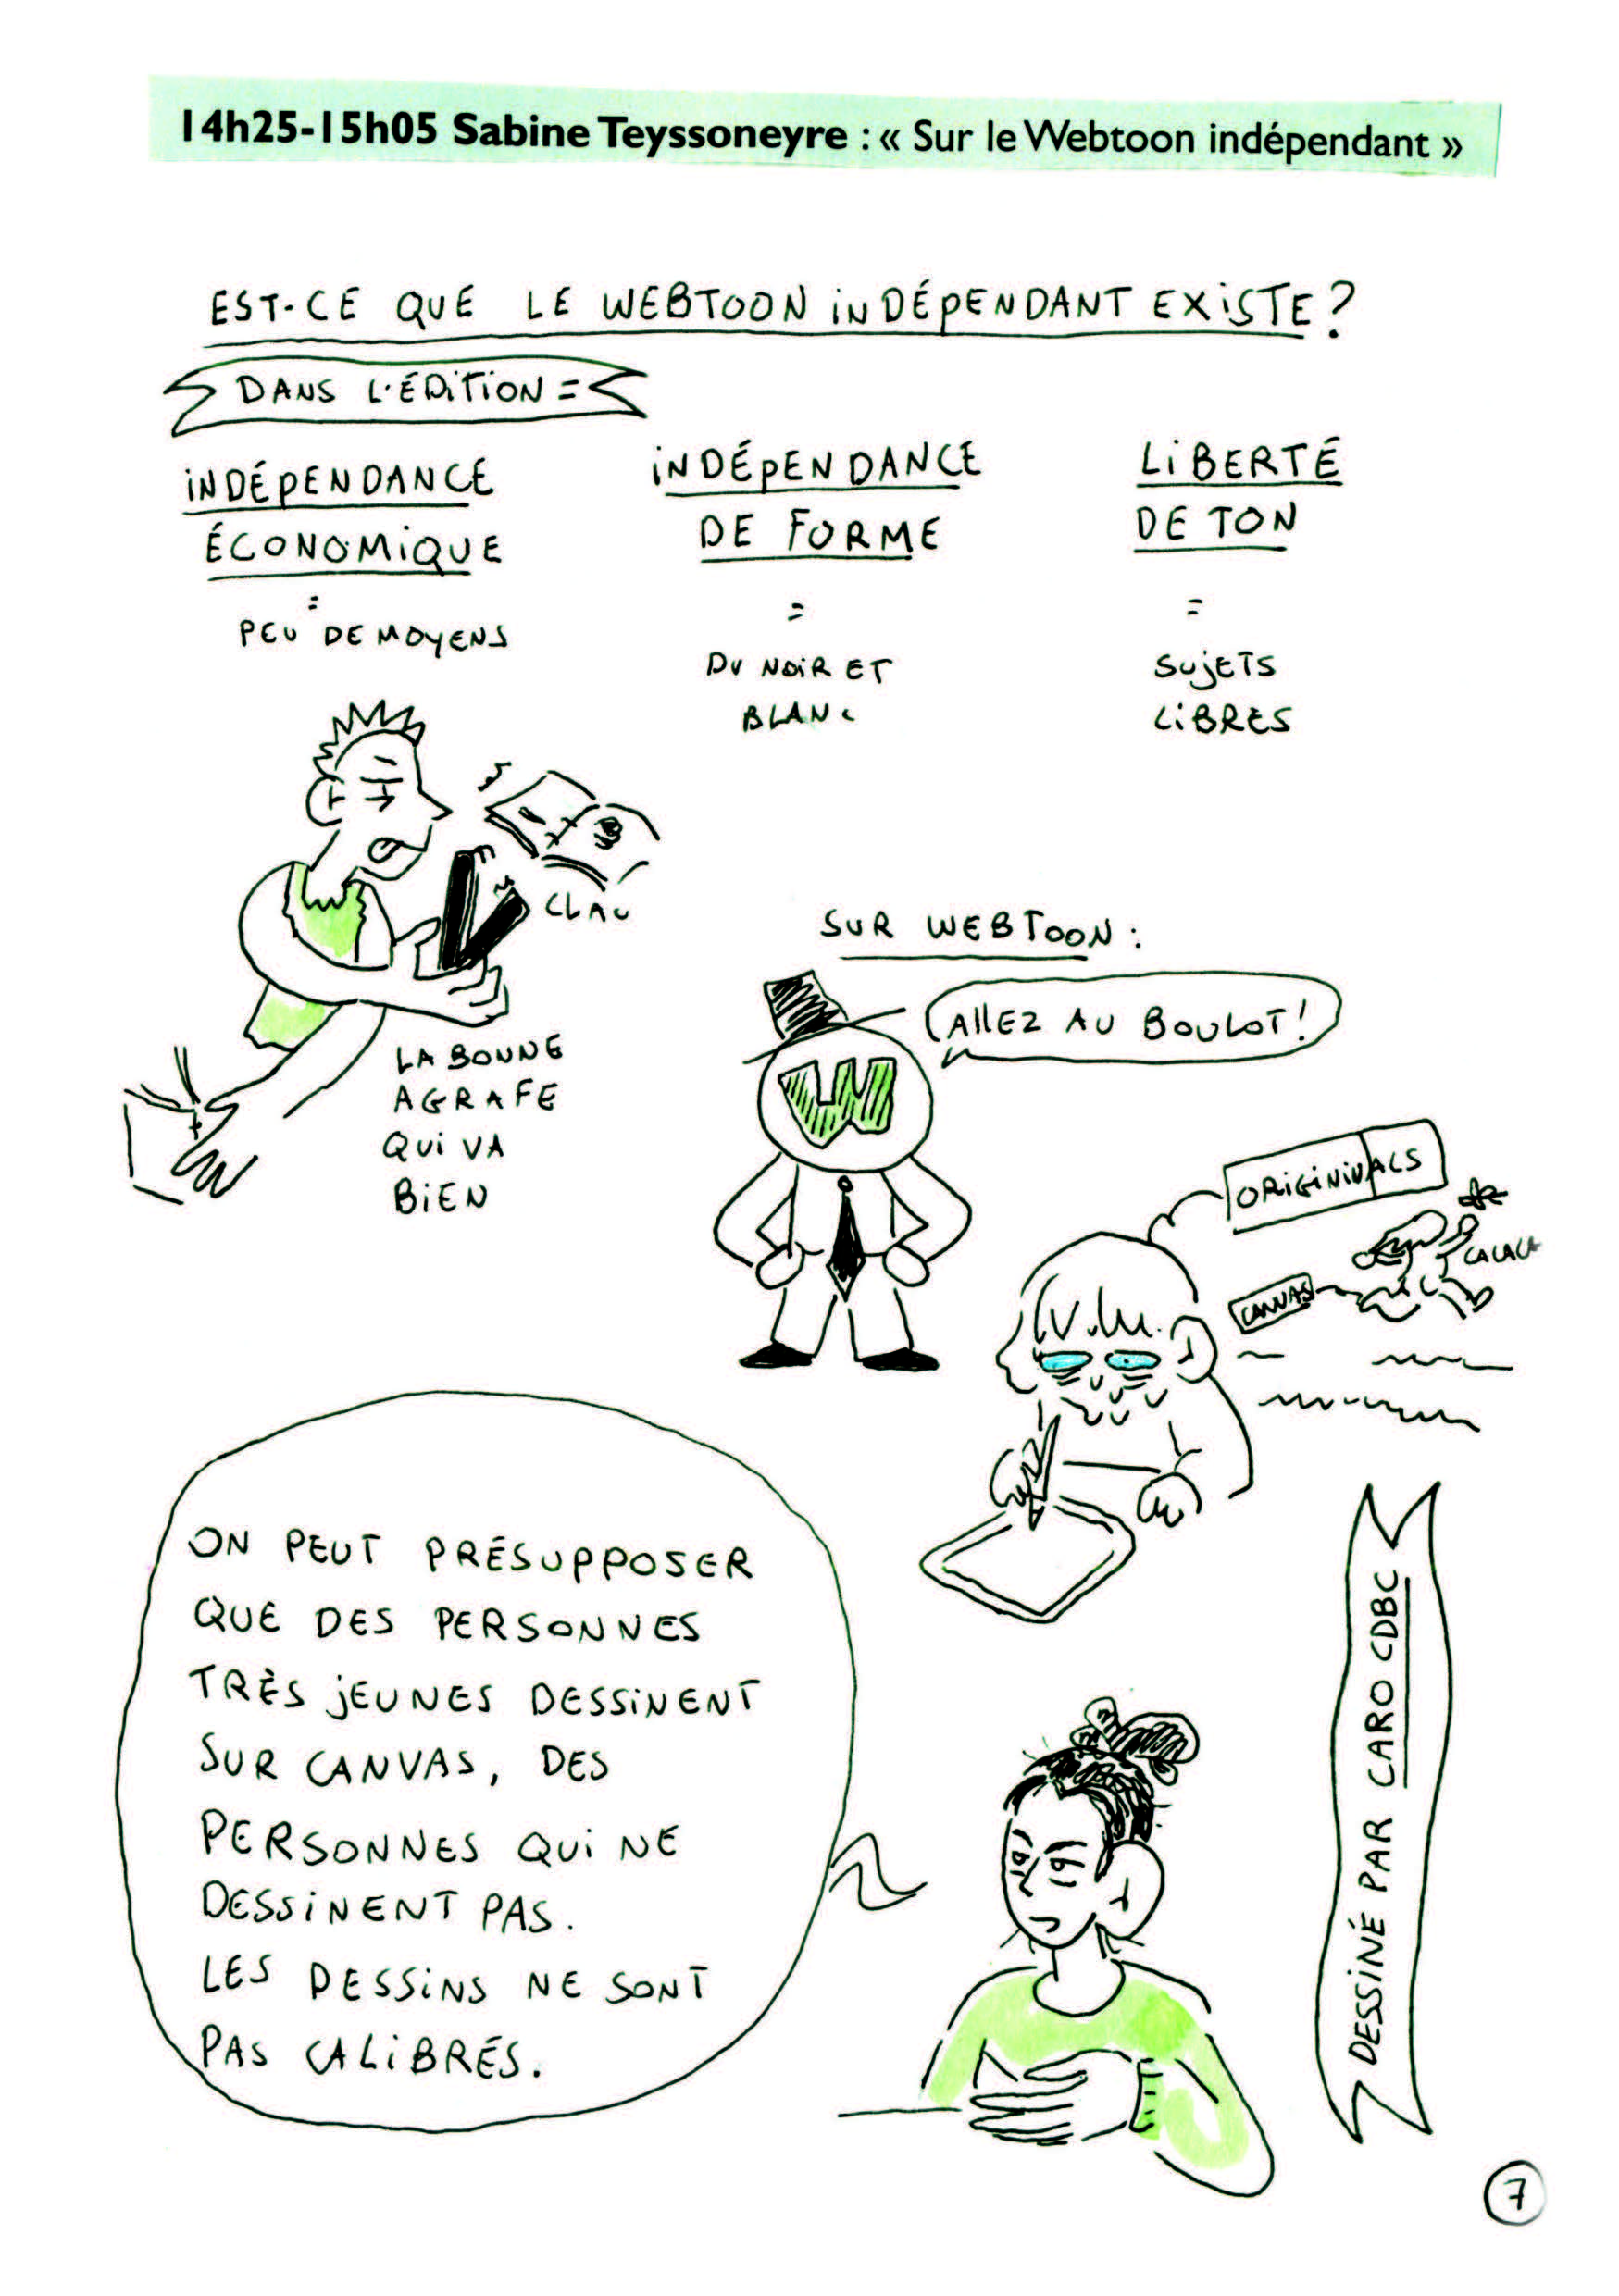 14h25-15h05 Sabine Teyssoneyre : « Sur le Webtoon indépendant »
EST-CE QUE LE WEBTOON INDÉPENDANT EXISTE ?
DANS L'ÉDITION =
INDÉPENDANCE
ÉCONOMIQUE
=
PEU DE MOYENS
INDÉPENDANCE
DE FORME
=
DU NOIR ET
BLANC
LIBERTÉ
DE TON
=
SUJETS
LIBRES
CLAC
LA BONNE
AGRAFE
QUI VA
BIEN
SUR WEBTOON :
ALLEZ AU BOULOT !
W
ORIGININALS
CANVAS
ON PEUT PRÉSUPPOSER
QUE DES PERSONNES
TRÈS JEUNES DESSINENT
SUR CANVAS, DES
PERSONNES QUI NE
DESSINENT PAS.
LES DESSINS NE SONT
PAS CALIBRÉS.
DESSINÉ PAR CARO CDBC
7